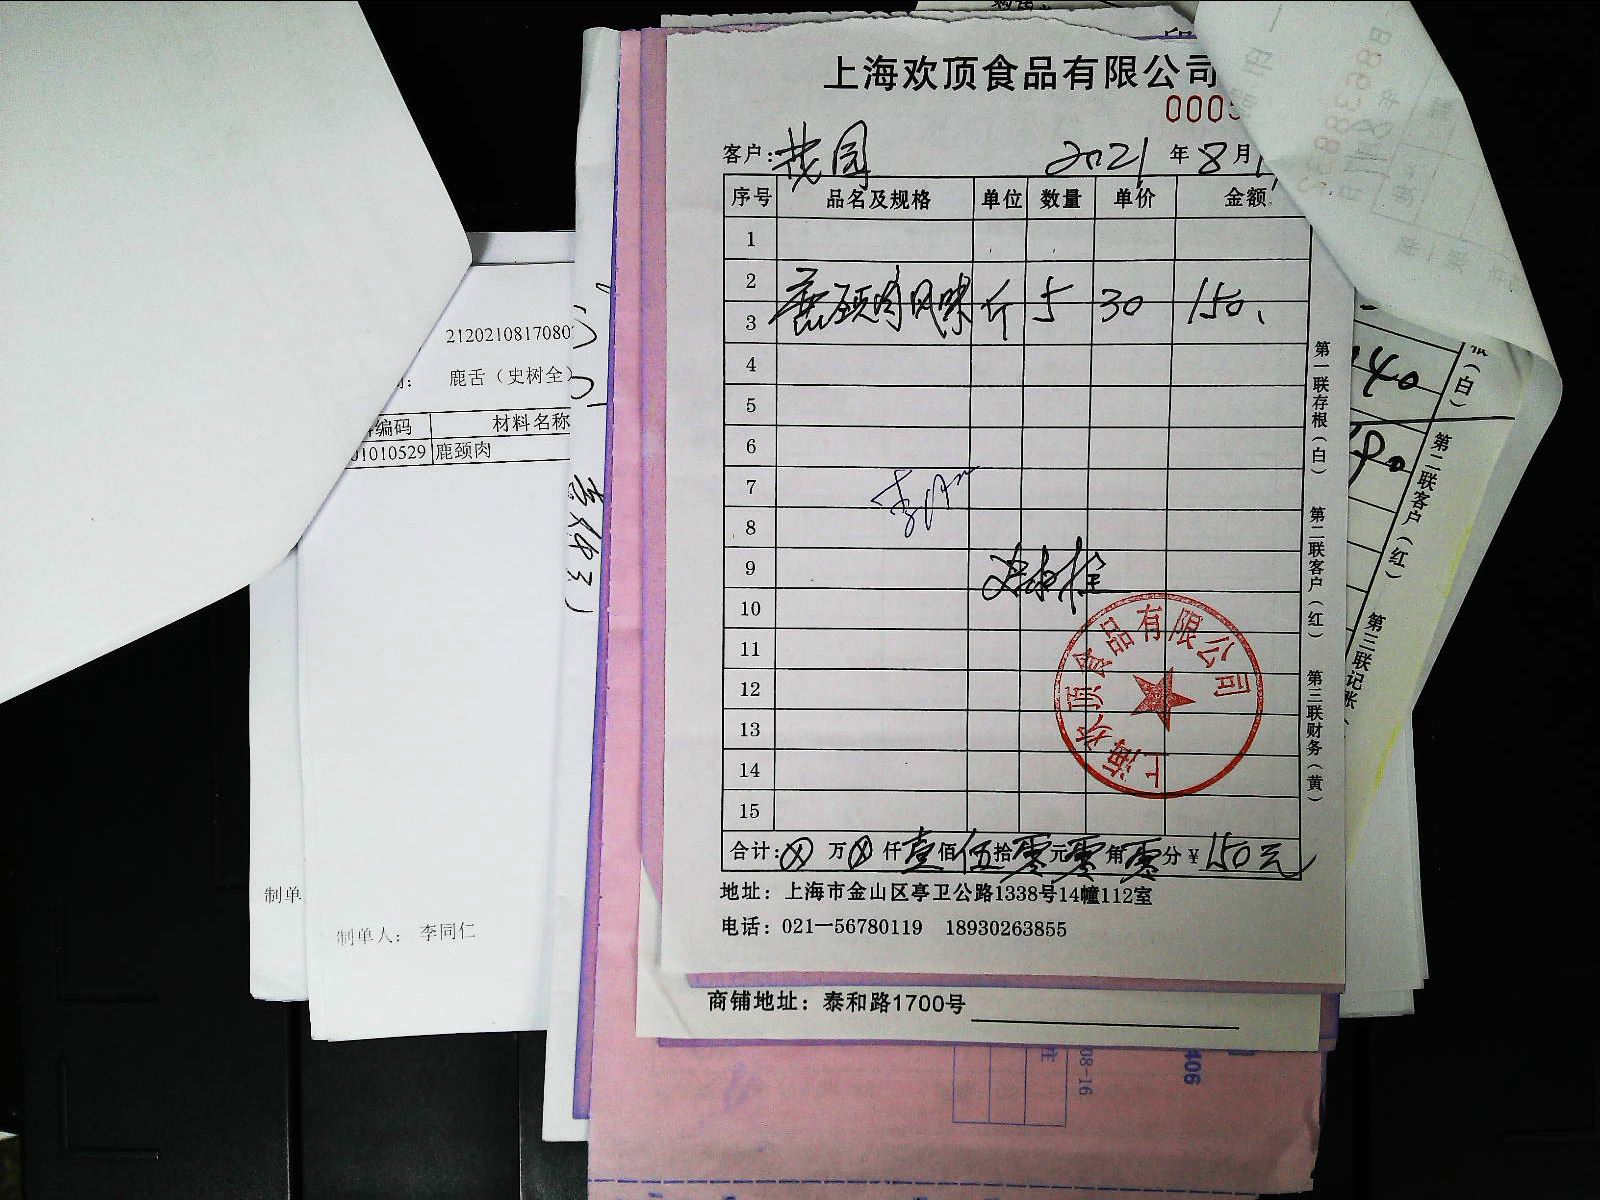 上海欢顶食品有限公司
000
客户：茂园 2021年8月
序号 品名及规格 单位 数量 单价 金额
1
2
3 鹿颈肉风味 斤 5 30 150.
4
5
6
7
8
9 史树全
10
11
12
13
14
15
合计：ⓧ万ⓧ仟壹佰伍拾零元零角零分￥150元
地址：上海市金山区亭卫公路1338号14幢112室
电话：021—56780119 18930263855
第一联存根（白） 第二联客户（红） 第三联财务（黄）
上海欢顶食品有限公司
商铺地址：泰和路1700号
212021081708
鹿舌（史树全）
编码 材料名称
01010529 鹿颈肉
制单
制单人： 李同仁
40
（白） 第二联客户（红） 第三联记账
08-16
406